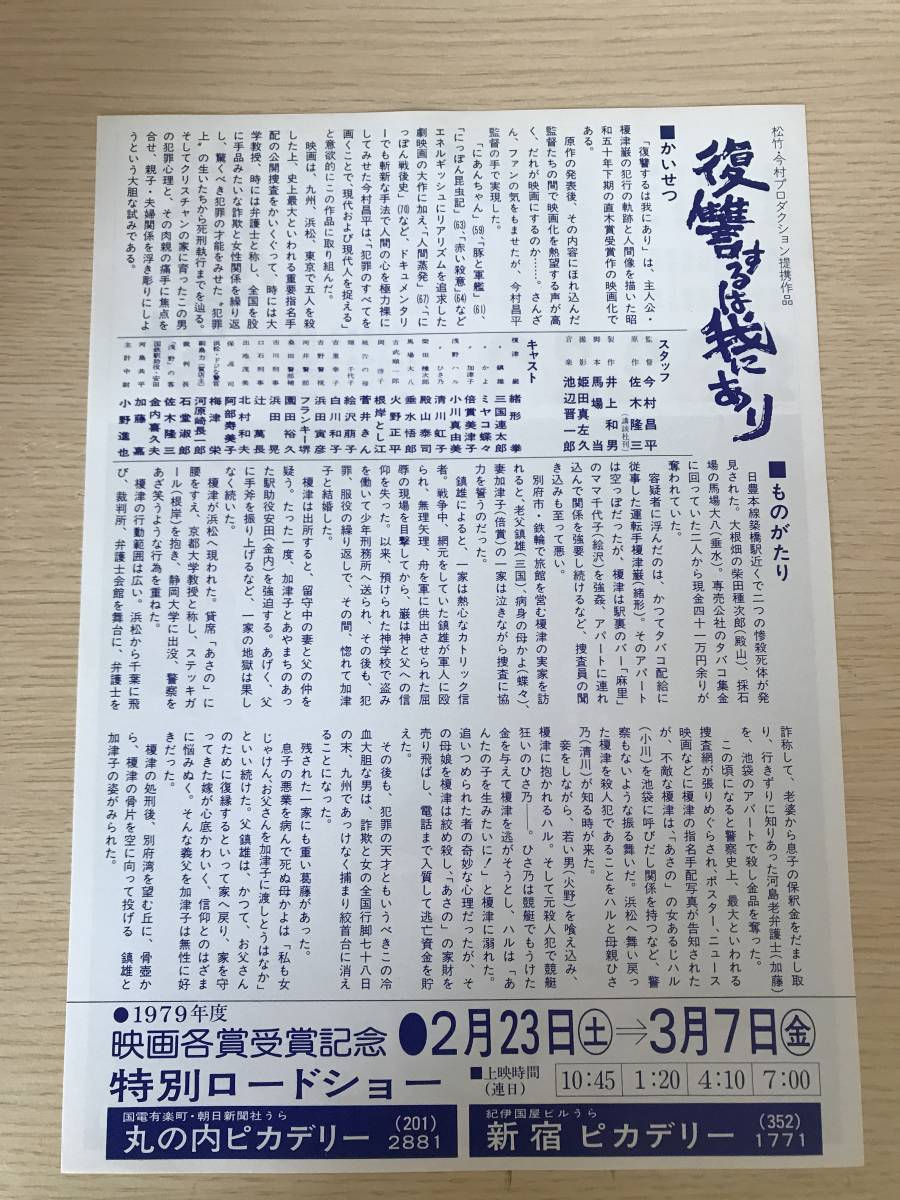 松竹・今村プロダクション提携作品
復讐するは我にあり
■かいせつ
「復讐するは我にあり」は、主人公・
榎津巌の犯行の軌跡と人間像を描いた昭
和五十年下期の直木賞受賞作の映画化で
ある。
原作の発表後、その内容にほれ込んだ
監督たちの間で映画化を熱望する声が高
く、だれが映画にするのか……。さんざ
ん、ファンの気をもませたが、今村昌平
監督の手で実現した。
「にあんちゃん」(59)「豚と軍艦」(61)、
「にっぽん昆虫記」(63)「赤い殺意」(64)など
エネルギッシュにリアリズムを追求した
劇映画の大作に加え、「人間蒸発」(67)、「に
っぽん戦後史」(70)など、ドキュメンタリ
ーでも斬新な手法で人間の心を極力裸に
してみせた今村昌平は、「犯罪のすべてを
画くことで、現代および現代人を捉える」
と意欲的にこの作品に取り組んだ。
映画は、九州、浜松、東京で五人を殺
した上、史上最大といわれる重要指名手
配の公開捜査をかいくぐって、時には大
学教授、時には弁護士と称し、全国を股
に手品みたいな詐欺と女性関係を繰り返
し、驚くべき犯罪の才能をみせた〝犯罪
上〟の生いたちから死刑執行までを辿る。
そしてクリスチャンの家に育ったこの男
の犯罪心理と、その肉親の痛手に焦点を
合せ、親子・夫婦関係を浮き彫りにしよ
うという大胆な試みである。
スタッフ
監督 今村昌平
原作 佐木隆三
(講談社刊)
製作 井上和男
脚本 馬場当
撮影 姫田真左久
音楽 池辺晋一郎
キャスト
榎津巌 緒形拳
〃鎮雄 三国連太郎
〃かよ ミヤコ蝶々
〃加津子 倍賞美津子
浅野ハル 小川真由美
〃ひさ乃 清川虹子
柴田種次郎 殿山泰司
馬場大八 垂水悟郎
古武順一郎 火野正平
岡啓子 根岸とし江
菅井きん
千代子 絵沢萠子
吉里幸子 白川和子
吉野警視 浜田寅彦
河井警部 フランキー堺
桑田警部補 園田裕久
市川刑事 浜田晃
口石刑事 辻萬長
出池茂美 北村和夫
保造司 阿部寿美子
浜松・ドジな警官 梅津栄
副島カ(質店主) 河原崎長一郎
裁判長 石堂淑郎
「浅野」の客 佐木隆三
国鉄駅助役・安田 金内喜久夫
河島共平 加藤嘉
主計中尉 小野進也
■ものがたり
日豊本線築橋駅近くで二つの惨殺死体が発
見された。大根畑の柴田種次郎(殿山)、採石
場の馬場大八(垂水)。専売公社のタバコ集金
に回っていた二人から現金四十一万円余りが
奪われていた。
容疑者に浮んだのは、かつてタバコ配給に
従事した運転手榎津巌(緒形)。そのアパート
は空っぽだったが、榎津は駅裏のバー「麻里」
のママ千代子(絵沢)を強姦、アパートに連れ
込んで関係を強要し続けるなど、捜査員の聞
き込みも至って悪い。
別府市・鉄輪で旅館を営む榎津の実家を訪
れると、老父鎮雄(三国)、病身の母かよ(蝶々)、
妻加津子(倍賞)の一家は泣きながら捜査に協
力を誓うのだった。
鎮雄によると、一家は熱心なカトリック信
者。戦争中、網元をしていた鎮雄が軍人に殴
られ、無理矢理、舟を軍に供出させられた屈
辱の現場を目撃してから、巌は神と父への信
仰を失った。以来、預けられた神学校で盗み
を働いて少年刑務所へ送られ、その後も、犯
罪、服役の繰り返しで、その間、惚れて加津
子と結婚した。
榎津は出所すると、留守中の妻と父の仲を
疑う。たった一度、加津子とあやまちのあっ
た駅助役安田(金内)を強迫する。あげく、父
に手斧を振り上げるなど、一家の地獄は果し
なく続いた。
榎津が浜松へ現われた。貸席「あさの」に
腰をすえ、京都大学教授と称し、ステッキガ
ール(根岸)を抱き、静岡大学に出没、警察を
あざ笑うような行為を重ねた。
榎津の行動範囲は広い。浜松から千葉に飛
び、裁判所、弁護士会館を舞台に、弁護士を
詐称して、老婆から息子の保釈金をだまし取
り、行きずりに知りあった河島老弁護士(加藤)
を、池袋のアパートで殺し金品を奪った。
この頃になると警察史上、最大といわれる
捜査網が張りめぐらされ、ポスター、ニュース
映画などに榎津の指名手配写真が告知された
が、不敵な榎津は、「あさの」の女あるじハル
(小川)を池袋に呼びだし関係を持つなど、警
察もないような振る舞いだ。浜松へ舞い戻っ
た榎津を殺人犯であることをハルと母親ひさ
乃(清川)が知る時が来た。
妾をしながら、若い男(火野)を喰え込み、
榎津に抱かれるハル。そして元殺人犯で競艇
狂いのひさ乃——。ひさ乃は競艇でもうけた
金を与えて榎津を逃がそうとし、ハルは「あ
んたの子を生みたいに!」と榎津に溺れた。
追いつめられた者の奇妙な心理だったが、そ
の母娘を榎津は絞め殺し、「あさの」の家財を
売り飛ばし、電話まで入質して逃亡資金を貯
えた。
その後も、犯罪の天才ともいうべきこの冷
血大胆な男は、詐欺と女の全国行脚七十八日
の末、九州であっけなく捕まり絞首台に消え
ることになった。
残された一家にも重い葛藤があった。
息子の悪業を病んで死ぬ母かよは「私も女
じゃけん、お父さんを加津子に渡しとうはなか」
といい続けた。父鎮雄は、かつて、お父さん
のために復縁するといって家へ戻り、家を守
ってきた嫁が心底かわいく、信仰とのはざま
に悩みぬく。そんな義父を加津子は無性に好
きだった。
榎津の処刑後、別府湾を望む丘に、骨壺か
ら、榎津の骨片を空に向って投げる 鎮雄と
加津子の姿がみられた。
●1979年度
映画各賞受賞記念
特別ロードショー
●2月23日㊏⇒3月7日㊎
■上映時間
(連日)
10:45 1:20 4:10 7:00
国電有楽町・朝日新聞社うら
丸の内ピカデリー (201)2881
紀伊国屋ビルうら
新宿ピカデリー (352)1771